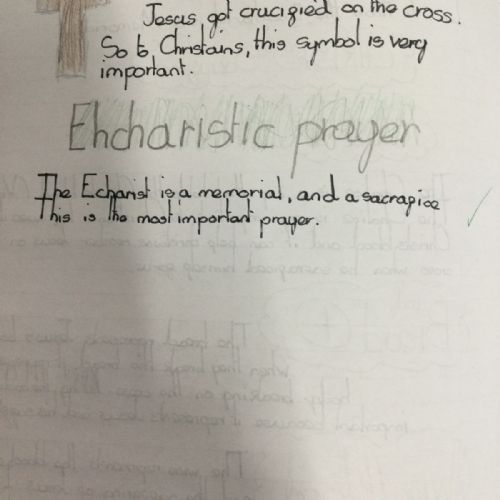 Jesus got crucified on the cross.
So to Christains, this symbol is very
important.
Ehcharistic prayer
The Echarist is a memorial, and a sacrapice
This is the most important prayer.